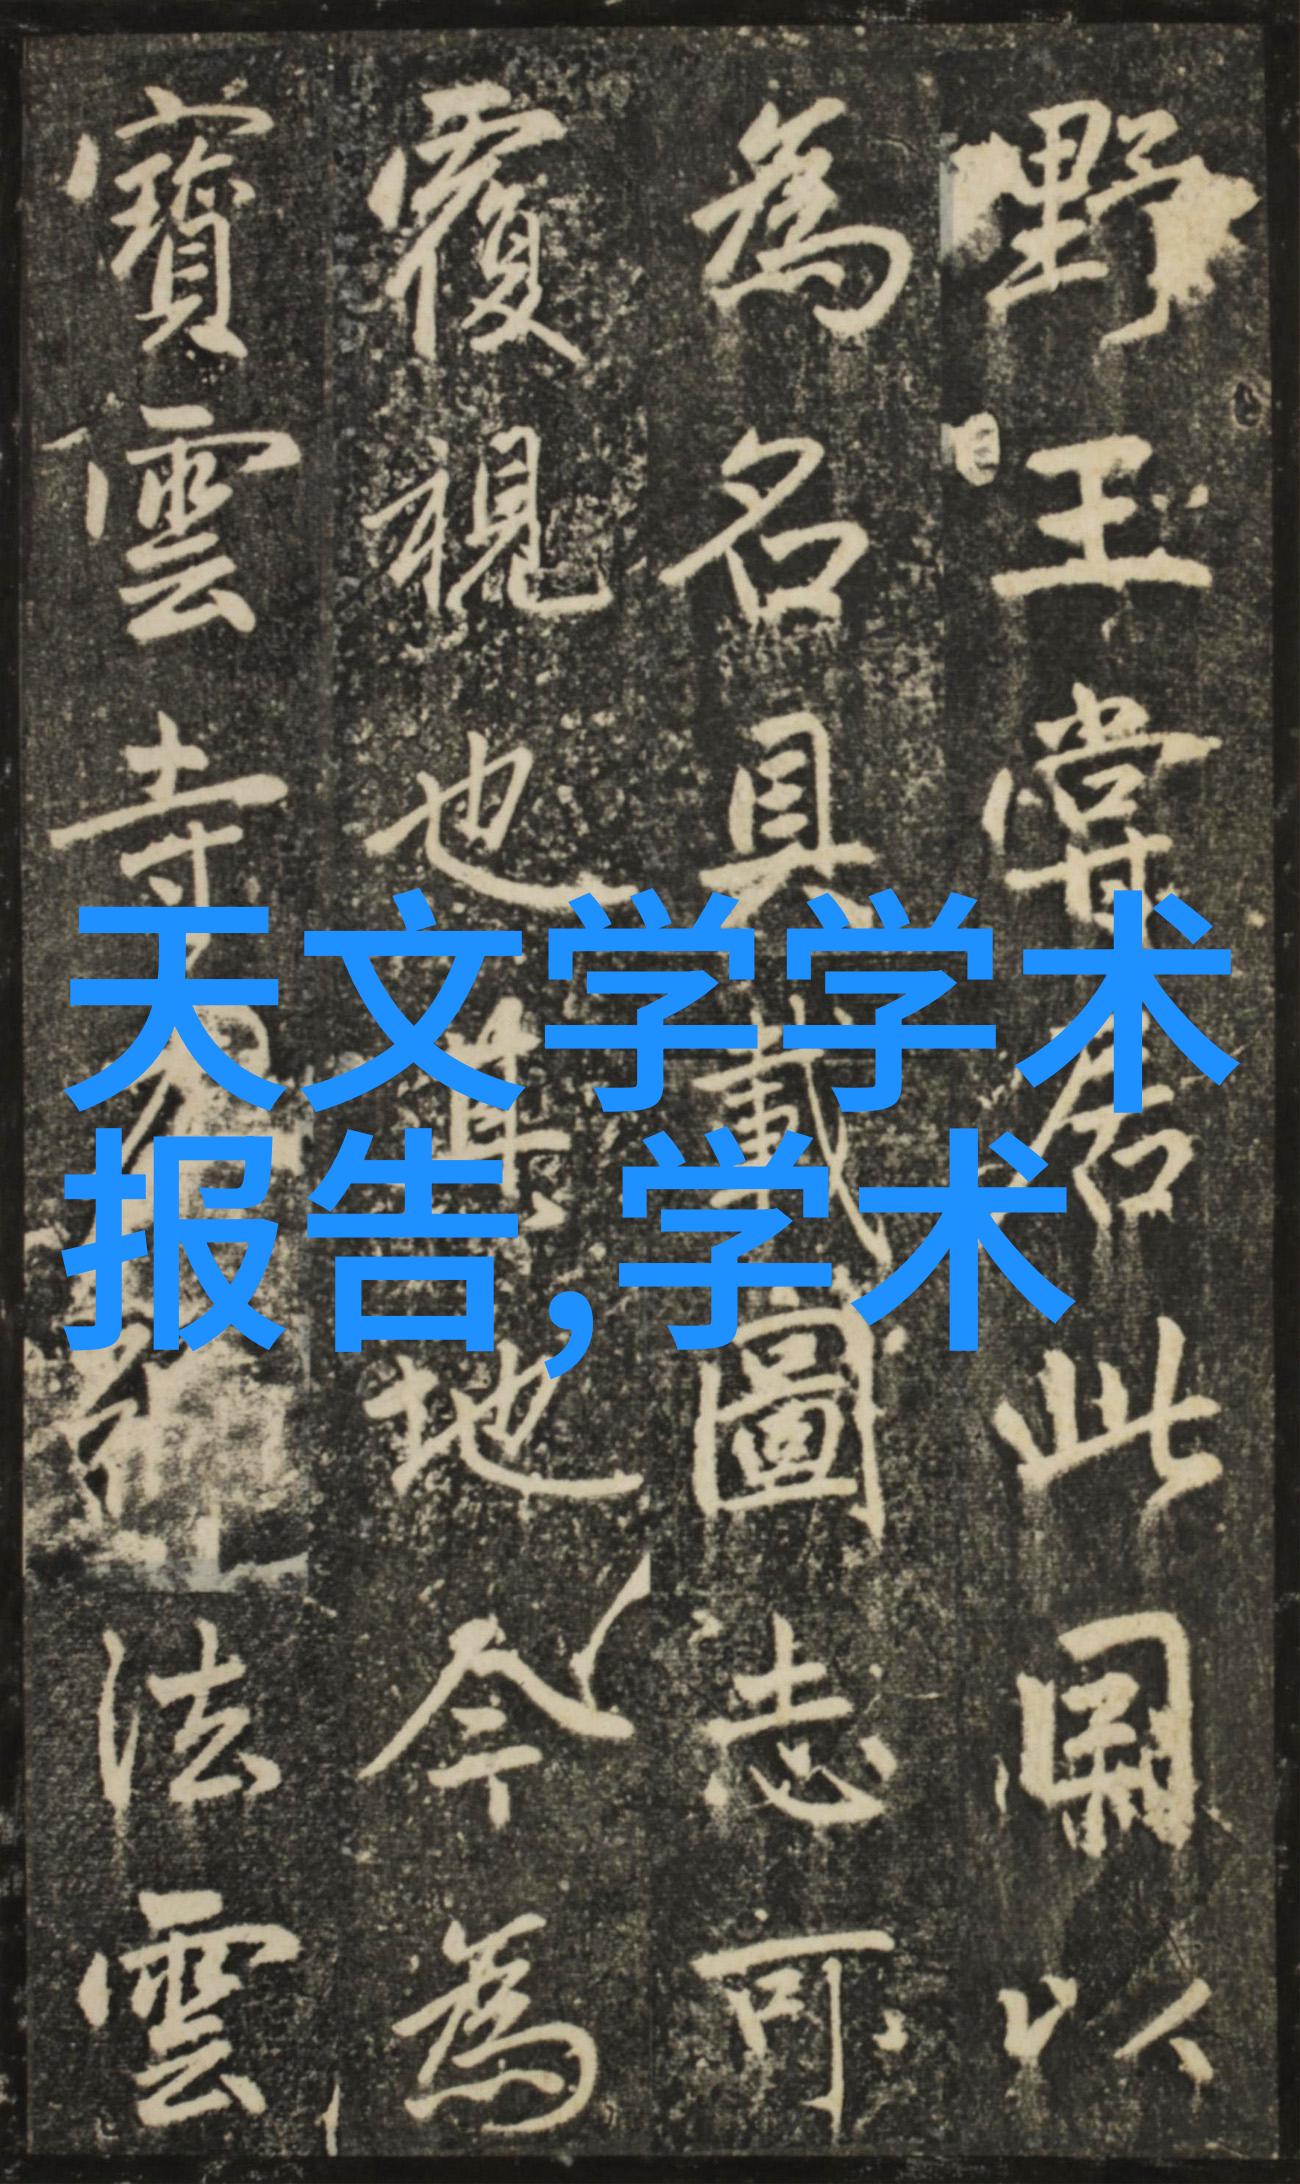 野王嘗居此以
為名具載圖志可
覆視也其地今為
寶雲寺法雲
天文学学术
报告,学术